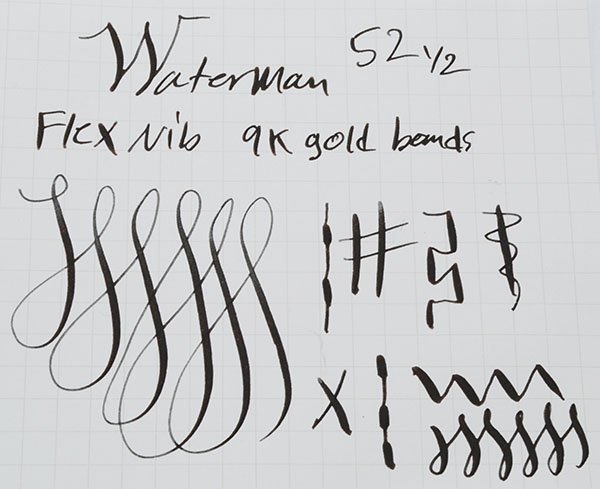 Waterman 52 1/2
Flex Nib 9K gold bands